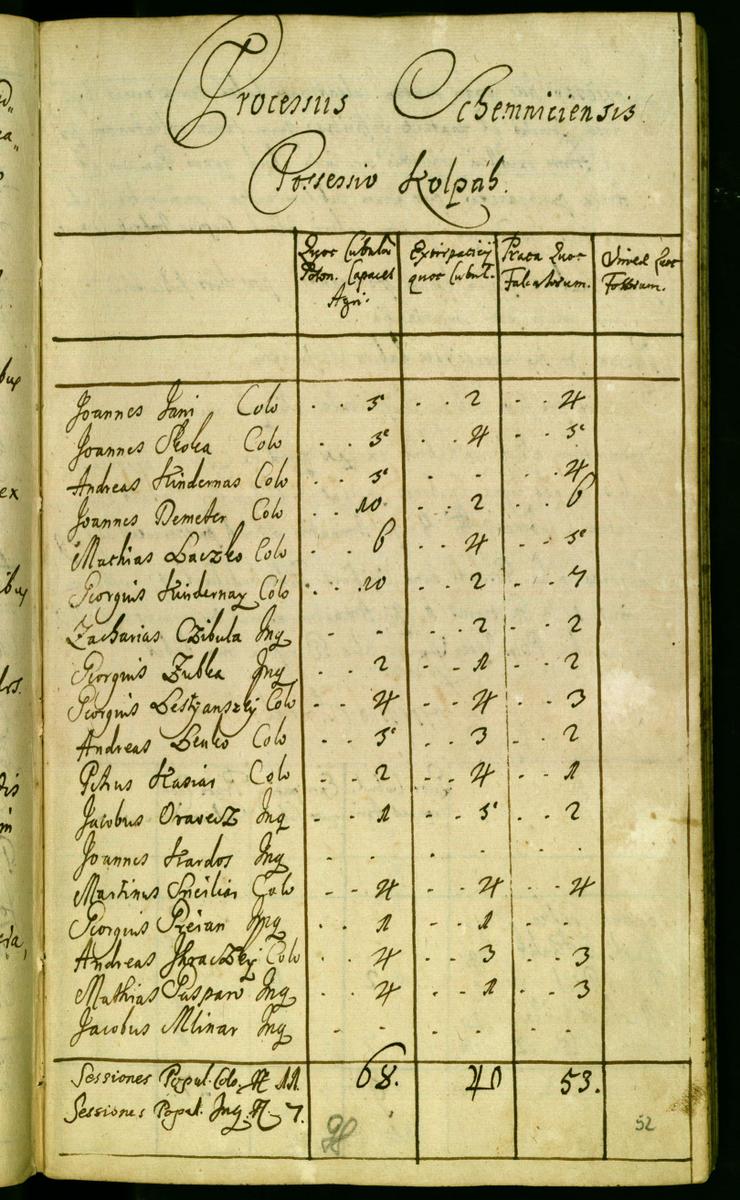 Processus Schemniciensis
Possessio Kolpáh.
Quot Cubulor Poson. Capaces Agri. Extirpaticij quot Cubul. Prata Quot Falcatorum. Vineæ Quot Fossorum.
Joannes Jani Colo . . 5 . . 2 . . 4
Joannes Skoka Colo . . 5 . . 4 . . 5
Andreas Hindernas Colo . . 5 . - 4
Joannes Demeter Colo . . 10 . . 2 . . 6
Mathias Laczko Colo . . 6 . . 4 . . 5
Georgius Hindernay Colo . . 10 . . 2 . . 7
Zacharias Czibula Inq - - . . 2 . . 2
Georgius Zubka Inq . . 2 . . 1 . . 2
Georgius Lestyanszky Colo . . 4 . . 4 . . 3
Andreas Lenko Colo . . 5 . . 3 . . 2
Petrus Hasiar Colo . . 2 . . 4 . . 1
Jacobus Oravecz Inq . . 1 . . 5 . . 2
Joannes Hardos Inq - . . . . .
Martinus Colo . . 4 . . 4 . . 4
Georgius Inq . . 1 . . 1 . -
Andreas Colo . . 4 . . 3 . . 3
Mathias Gasparo Inq . . 4 . . 1 . . 3
Jacobus Mlinar Inq - - - - - -
Sessiones Popul. Colo. N 11. 68. 41 53.
Sessiones Popul. Inq. N 7.
52